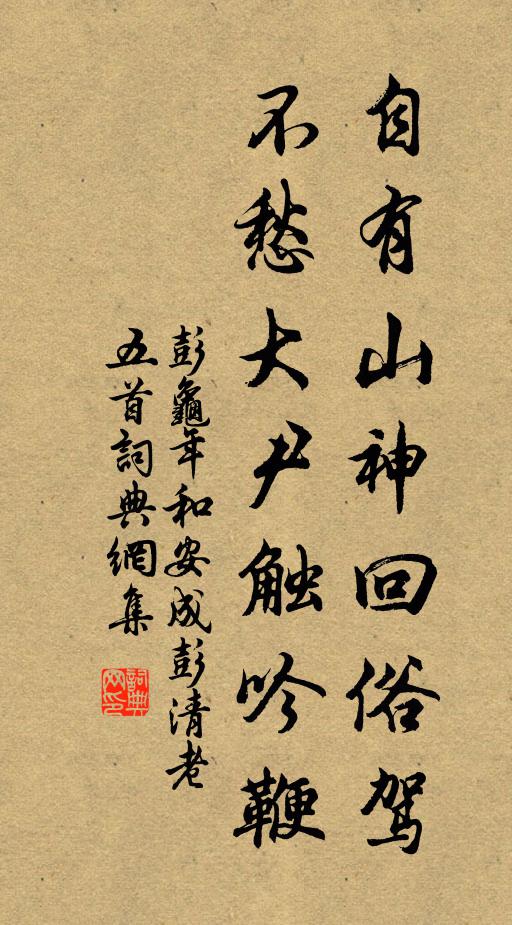 自有山神回俗驾
不愁大尹触吟鞭
彭龜年和安成彭清老
五首詞典網集
詞典网印